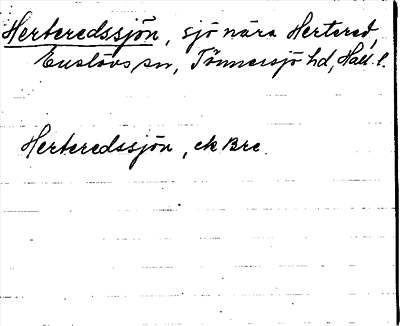 Herteredssjön, sjö nära Hertered,
Enslövs sn, Tönnersjö hd, Hall l.
Herteredssjön, ek Bre.